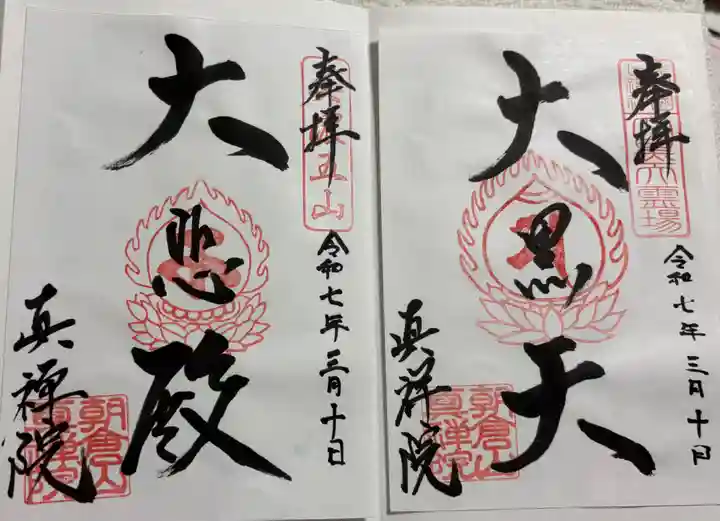 奉拝
大悲殿
令和七年三月十日
真禅院
朝倉山
真禅院
奉拝
大黒天
令和七年三月十日
真禅院
朝倉山
真禅院